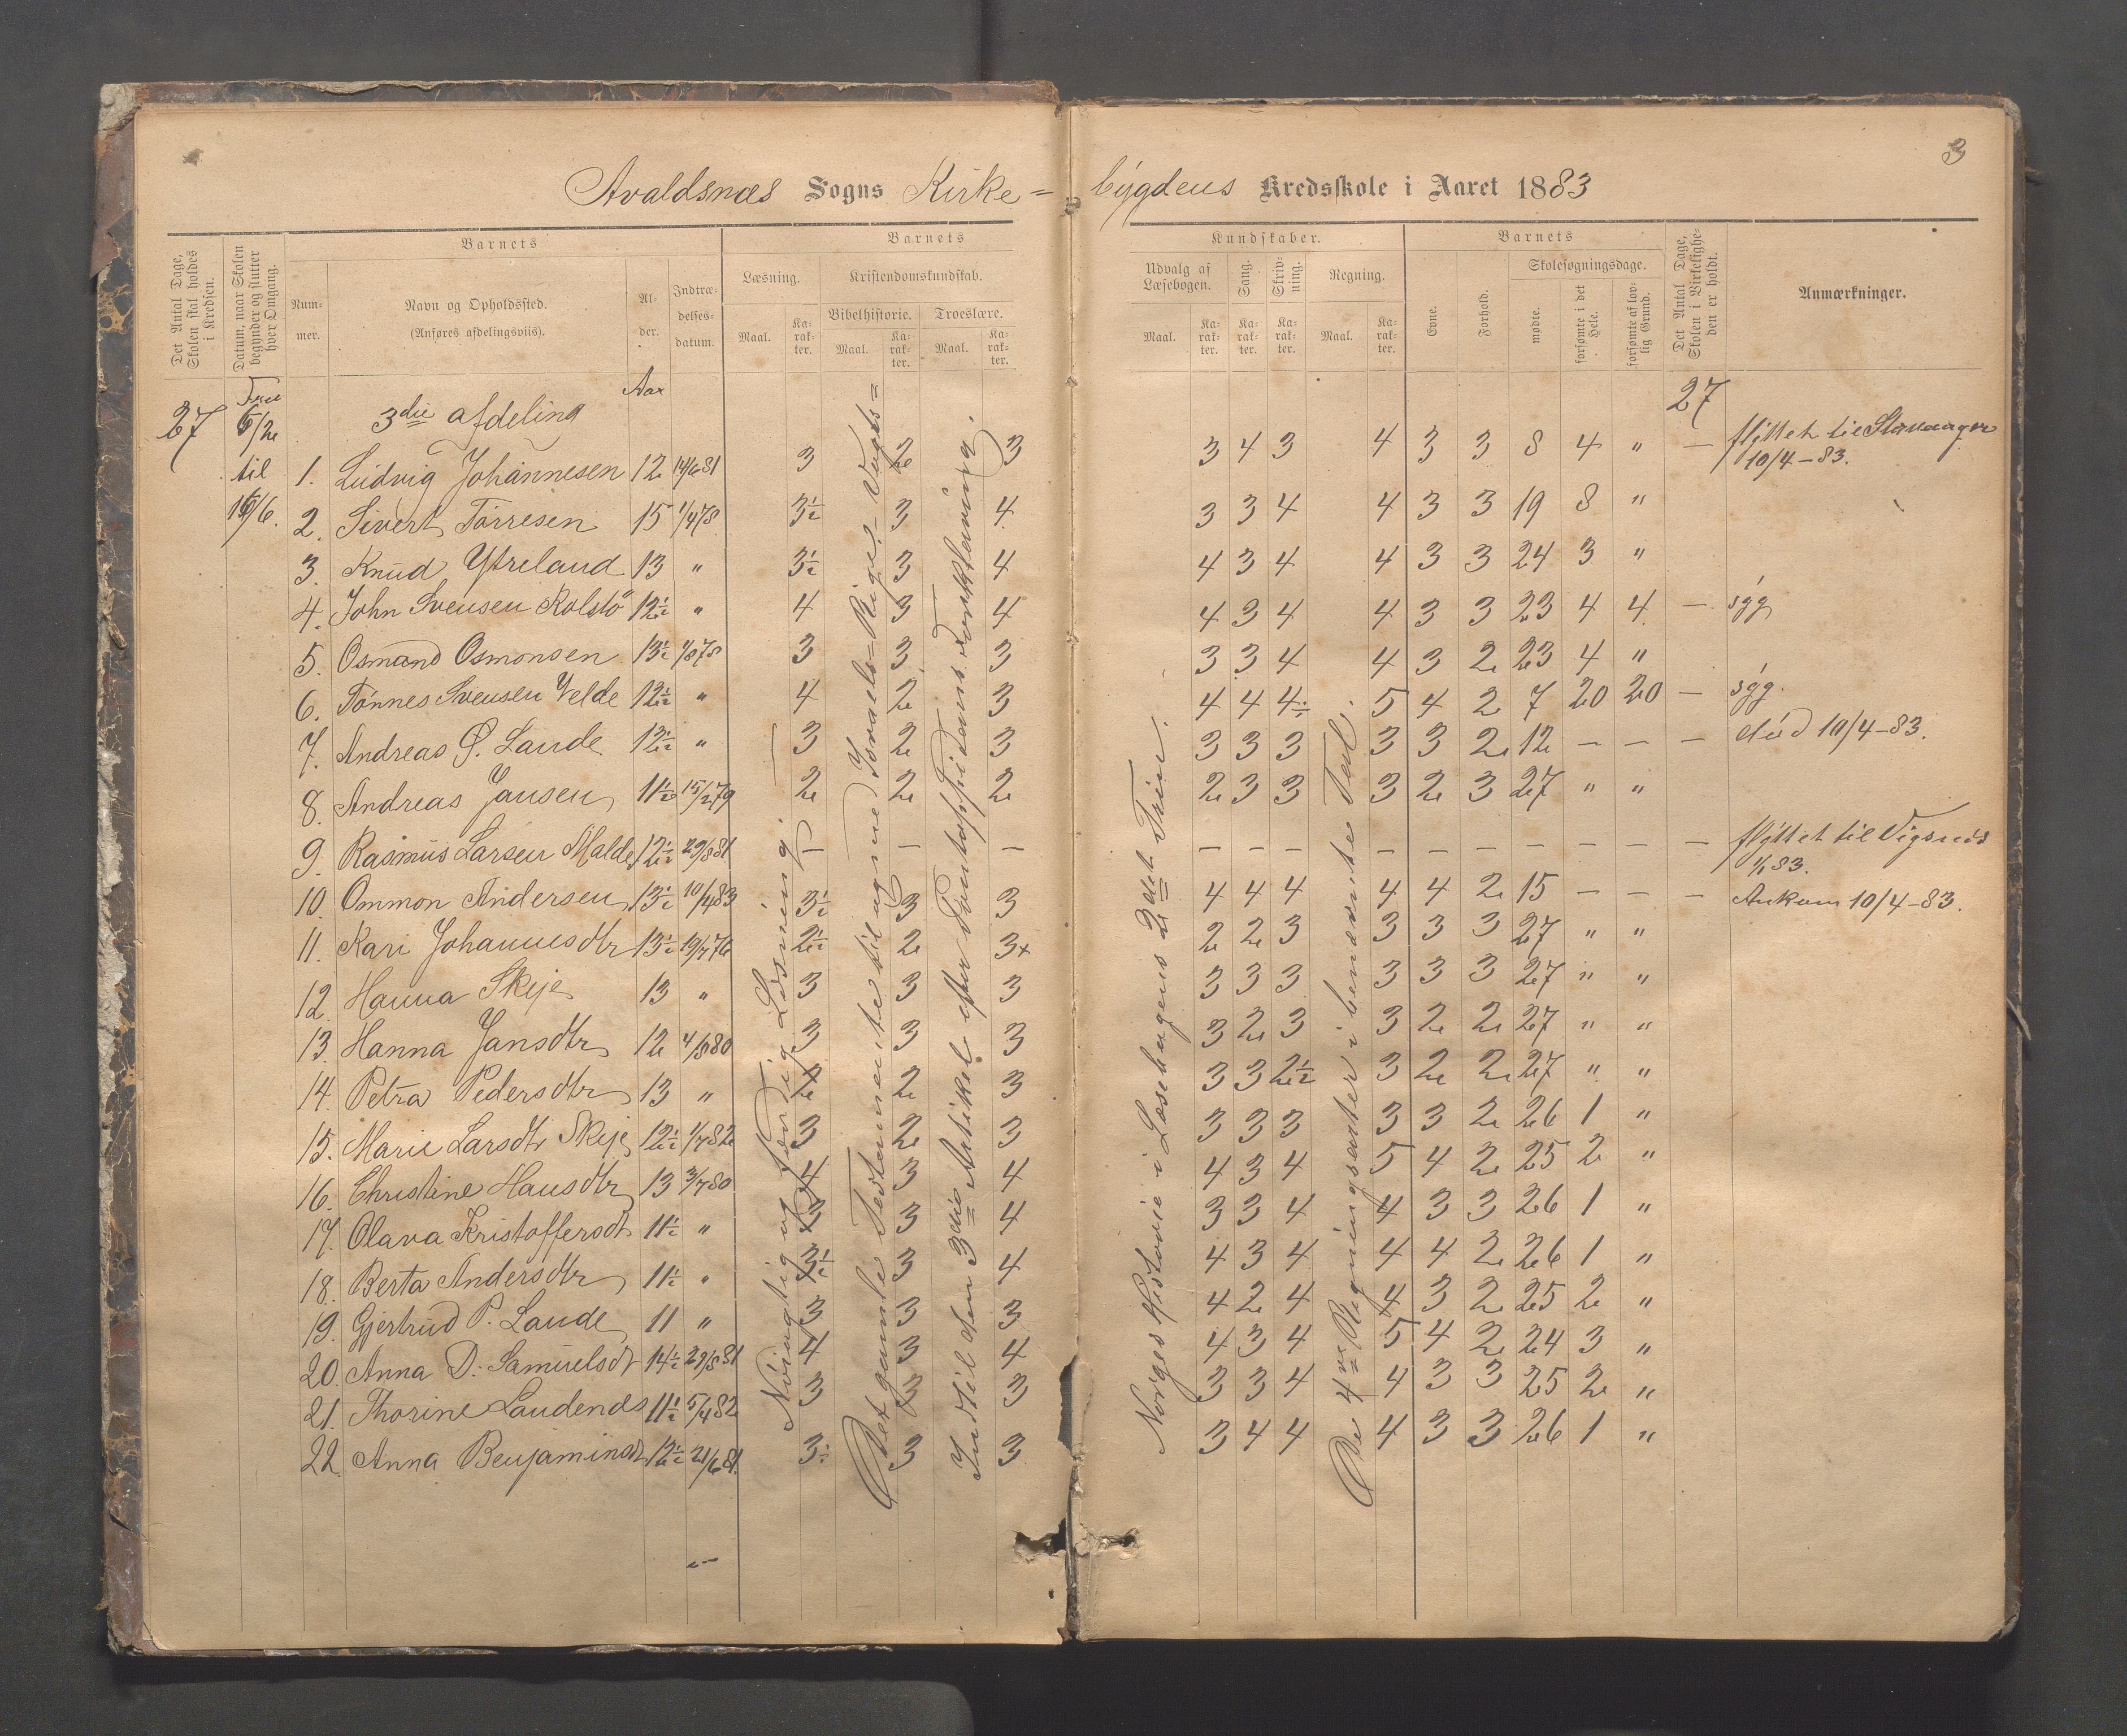 3
Avaldsnæs Sogns Kirke=bygdens Kredsskole i Aaret 1883
Det Antal Dage, Skolen skal holdes i Kredsen.
Datum, naar Skolen begynder og slutter hver Omgang.
Barnets
Nummer.
Navn og Opholdssted.
(Anføres afdelingsviis).
Alder.
Indtrædelsesdatum.
Barnets
Læsning.
Maal.
Karakter.
Kristendomskundskab.
Bibelhistorie.
Maal.
Karakter.
Troeslære.
Maal.
Karakter.
Kundskaber.
Udvalg af Læsebogen.
Maal.
Karakter.
Sang.
Karakter.
Skrivning.
Karakter.
Regning.
Maal.
Karakter.
Barnets
Evne.
Forhold.
Skolesøgningsdage.
mødte.
forsømte i det Hele.
forsømte af lovlig Grund.
Det Antal Dage, Skolen i Virkeligheden er holdt.
Anmærkninger.
27
Fra 6/2 til 16/6.
3die afdeling
Aar
27
1. Ludvig Johannesen 12 14/6 81 3 2 3 3 4 3 4 3 3 8 4 " — flyttet til Stavanger 10/4–83.
2. Sivert Tørresen 15 1/4 78 3½ 3 4 3 3 4 4 3 3 19 8 "
3. Knud Ytreland 13 " 3½ 3 4 4 3 4 4 3 3 24 3 "
4. John Svensen Rolstø 12½ " 4 3 4 4 3 4 4 3 3 23 4 4 — syg
5. Osmand Osmonsen 13½ 1/8 78 3 3 3 3 3 4 4 3 2 23 4 "
6. Tønnes Svensen Velde 12½ " 4 2 3 4 4 4÷ 5 4 2 7 20 20 — syg.
7. Andreas Ø. Lande 12½ " 3 2 3 3 3 3 3 3 2 12 — — — død 10/4–83.
8. Andreas Jansen 11½ 15/2 79 2 2 2 2 3 3 3 2 3 27 " "
9. Rasmus Larsen Malde 12½ 29/8 81 — — — — — — — — — — — — — flyttet til Vigsnes 1/1 83.
10. Ommon Andersen 13½ 10/4 83 3½ 3 3 4 4 4 4 4 2 15 — — — Ankom 10/4–83.
11. Kari Johannesdtr 13½ 19/7 76 2½ 2 3+ 2 2 3 3 3 3 27 " "
12. Hanna Skeje 13 " 3 3 3 3 3 3 3 3 3 27 " "
13. Hanna Jansdtr 12 4/8 80 3 3 3 3 2 3 3 2 2 27 " "
14. Petra Pedersdtr 13 " 2 2 3 3 3 2½ 3 2 2 27 " "
15. Marie Larsdtr Skeje 12½ 1/7 82 3 2 3 3 3 3 3 3 2 26 1 "
16. Christine Hansdtr 13 3/7 80 4 3 4 4 3 4 5 4 2 25 2 "
17. Olava Kristoffersdt 11½ " 3 3 4 3 3 4 4 3 3 26 1 "
18. Berta Andersdtr 11½ " 3½ 3 4 4 3 4 4 4 2 26 1 "
19. Gjertrud P. Lande 11 " 3 3 3 4 2 4 4 3 2 25 2 "
20. Anna D. Samuelsdt 14½ 29/8 81 4 3 4 4 3 4 5 4 2 24 3 "
21. Thorine Laudends 11½ 5/4 82 3 3 3 3 3 4 4 3 3 25 2 "
22. Anna Benjaminsdt 12½ 21/6 81. 3÷ 3 3 3 4 4 4 3 3 26 1 "
Nøiagtig og færdig Læsning
Det gamle Testamente tilogmed Israels=Riges=Vægts=
Indtil den 3die Artikel efter Pontoppidans Forklaring.
Norges Historie i Læsebogens 2det Trin.
De 4re Regningsarter i benævnte Tal.